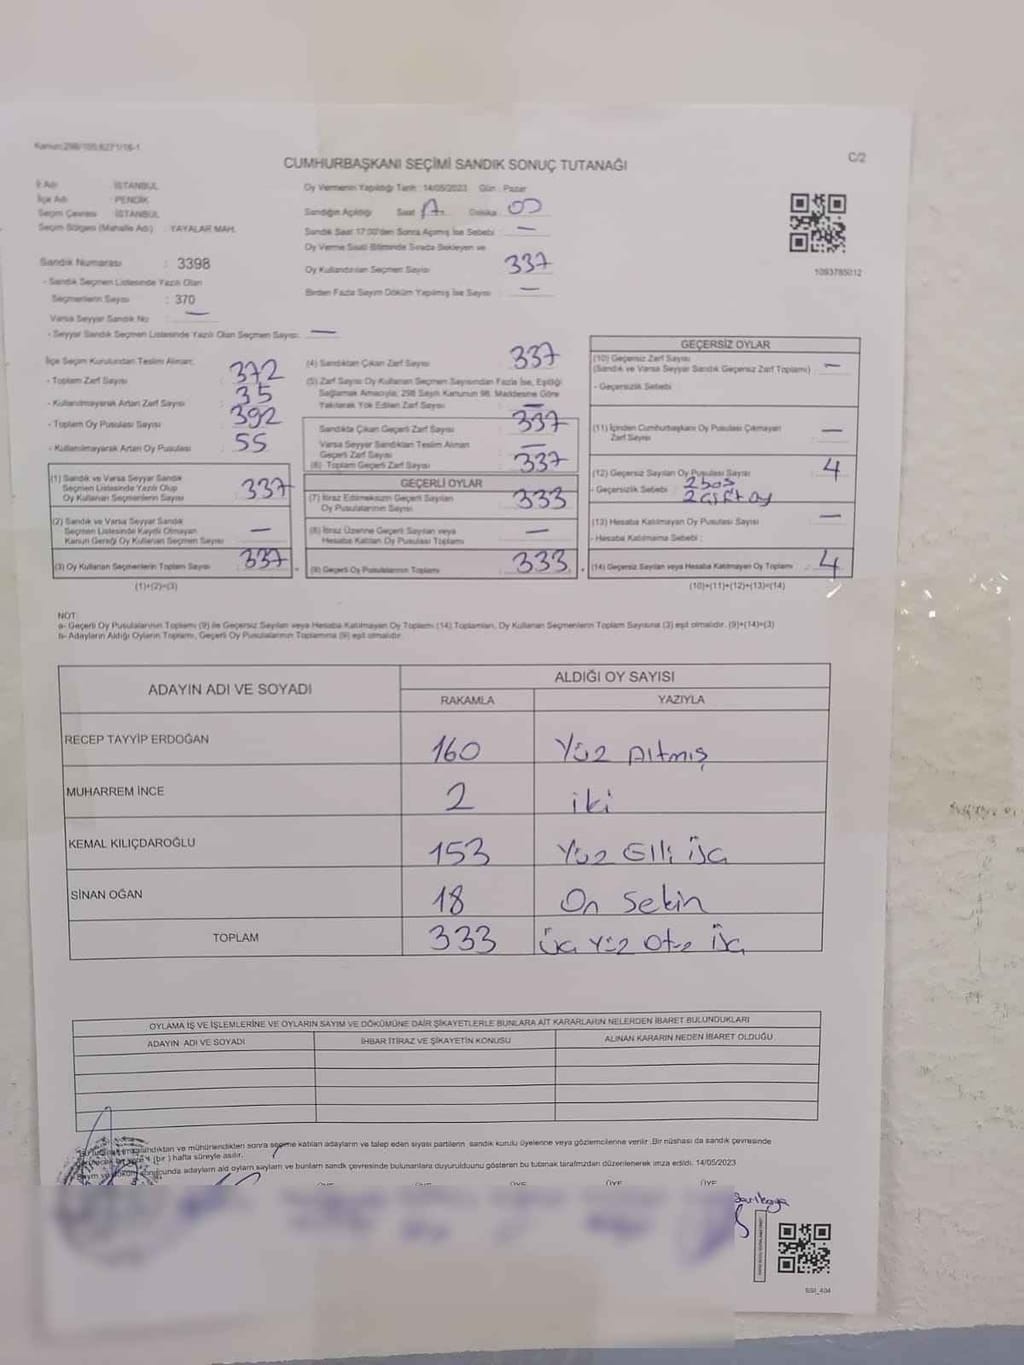 Kanun:298/105,6271/16-1
C/2
CUMHURBAŞKANI SEÇİMİ SANDIK SONUÇ TUTANAĞI
İl Adı : İSTANBUL
İlçe Adı : PENDİK
Seçim Çevresi : İSTANBUL
Seçim Bölgesi (Mahalle Adı) : YAYALAR MAH.
Sandık Numarası : 3398
- Sandık Seçmen Listesinde Yazılı Olan
Seçmenlerin Sayısı : 370
Varsa Seyyar Sandık No : —
- Seyyar Sandık Seçmen Listesinde Yazılı Olan Seçmen Sayısı: —
Oy Vermenin Yapıldığı Tarih : 14/05/2023 Gün : Pazar
Sandığın Açıldığı Saat Dakika : 00
Sandık Saat 17:00'den Sonra Açılmış İse Sebebi : —
Oy Verme Saati Bitiminde Sırada Bekleyen ve
Oy Kullandırılan Seçmen Sayısı 337
Birden Fazla Sayım Döküm Yapılmış İse Sayısı : —
1093785012
İlçe Seçim Kurulundan Teslim Alınan;
- Toplam Zarf Sayısı 372
- Kullanılmayarak Artan Zarf Sayısı 35
- Toplam Oy Pusulası Sayısı 392
- Kullanılmayarak Artan Oy Pusulası 55
(1) Sandık ve Varsa Seyyar Sandık
Seçmen Listesinde Yazılı Olup
Oy Kullanan Seçmenlerin Sayısı 337
(2) Sandık ve Varsa Seyyar Sandık
Seçmen Listesinde Kayıtlı Olmayan
Kanun Gereği Oy Kullanan Seçmen Sayısı —
(3) Oy Kullanan Seçmenlerin Toplam Sayısı 337
(1)+(2)=(3)
(4) Sandıktan Çıkan Zarf Sayısı 337
(5) Zarf Sayısı Oy Kullanan Seçmen Sayısından Fazla İse, Eşitliği
Sağlamak Amacıyla; 298 Sayılı Kanunun 98. Maddesine Göre
Yakılarak Yok Edilen Zarf Sayısı —
Sandıkta Çıkan Geçerli Zarf Sayısı 337
Varsa Seyyar Sandıktan Teslim Alınan
Geçerli Zarf Sayısı —
(6) Toplam Geçerli Zarf Sayısı 337
GEÇERLİ OYLAR
(7) İtiraz Edilmeksizin Geçerli Sayılan
Oy Pusulalarının Sayısı 333
(8) İtiraz Üzerine Geçerli Sayılan veya
Hesaba Katılan Oy Pusulası Toplamı —
(9) Geçerli Oy Pusulalarının Toplamı 333
GEÇERSİZ OYLAR
(10) Geçersiz Zarf Sayısı
(Sandık ve Varsa Seyyar Sandık Geçersiz Zarf Toplamı) —
- Geçersizlik Sebebi
(11) İçinden Cumhurbaşkanı Oy Pusulası Çıkmayan
Zarf Sayısı —
(12) Geçersiz Sayılan Oy Pusulası Sayısı 4
- Geçersizlik Sebebi : 2 boş
2 çift oy
(13) Hesaba Katılmayan Oy Pusulası Sayısı —
- Hesaba Katılmama Sebebi :
(14) Geçersiz Sayılan veya Hesaba Katılmayan Oy Toplamı 4
(10)+(11)+(12)+(13)=(14)
NOT:
a- Geçerli Oy Pusulalarının Toplamı (9) ile Geçersiz Sayılan veya Hesaba Katılmayan Oy Toplamı (14) Toplamları, Oy Kullanan Seçmenlerin Toplam Sayısına (3) eşit olmalıdır. (9)+(14)=(3)
b- Adayların Aldığı Oyların Toplamı, Geçerli Oy Pusulalarının Toplamına (9) eşit olmalıdır.
ADAYIN ADI VE SOYADI
ALDIĞI OY SAYISI
RAKAMLA YAZIYLA
RECEP TAYYİP ERDOĞAN 160 Yüz Altmış
MUHARREM İNCE 2 iki
KEMAL KILIÇDAROĞLU 153 Yüz Elli üç
SİNAN OĞAN 18 On Sekin
TOPLAM 333 Üç Yüz Otuz üç
OYLAMA İŞ VE İŞLEMLERİNE VE OYLARIN SAYIM VE DÖKÜMÜNE DAİR ŞİKAYETLERLE BUNLARA AİT KARARLARIN NELERDEN İBARET BULUNDUKLARI
ADAYIN ADI VE SOYADI
İHBAR İTİRAZ VE ŞİKAYETİN KONUSU
ALINAN KARARIN NEDEN İBARET OLDUĞU
ve mühürlendikten sonra seçime katılan adayların ve talep eden siyasi partilerin sandık kurulu üyelerine veya gözlemcilerine verilir .Bir nüshası da sandık çevresinde
(bir ) hafta süreyle asılır.
adayların aldı oyların sayıları ve bunların sandık çevresinde bulunanlara duyurulduunu gösteren bu tutanak tarafımızdan düzenlenerek imza edildi. 14/05/2023
ÜYE ÜYE ÜYE ÜYE ÜYE
Sarıkaya